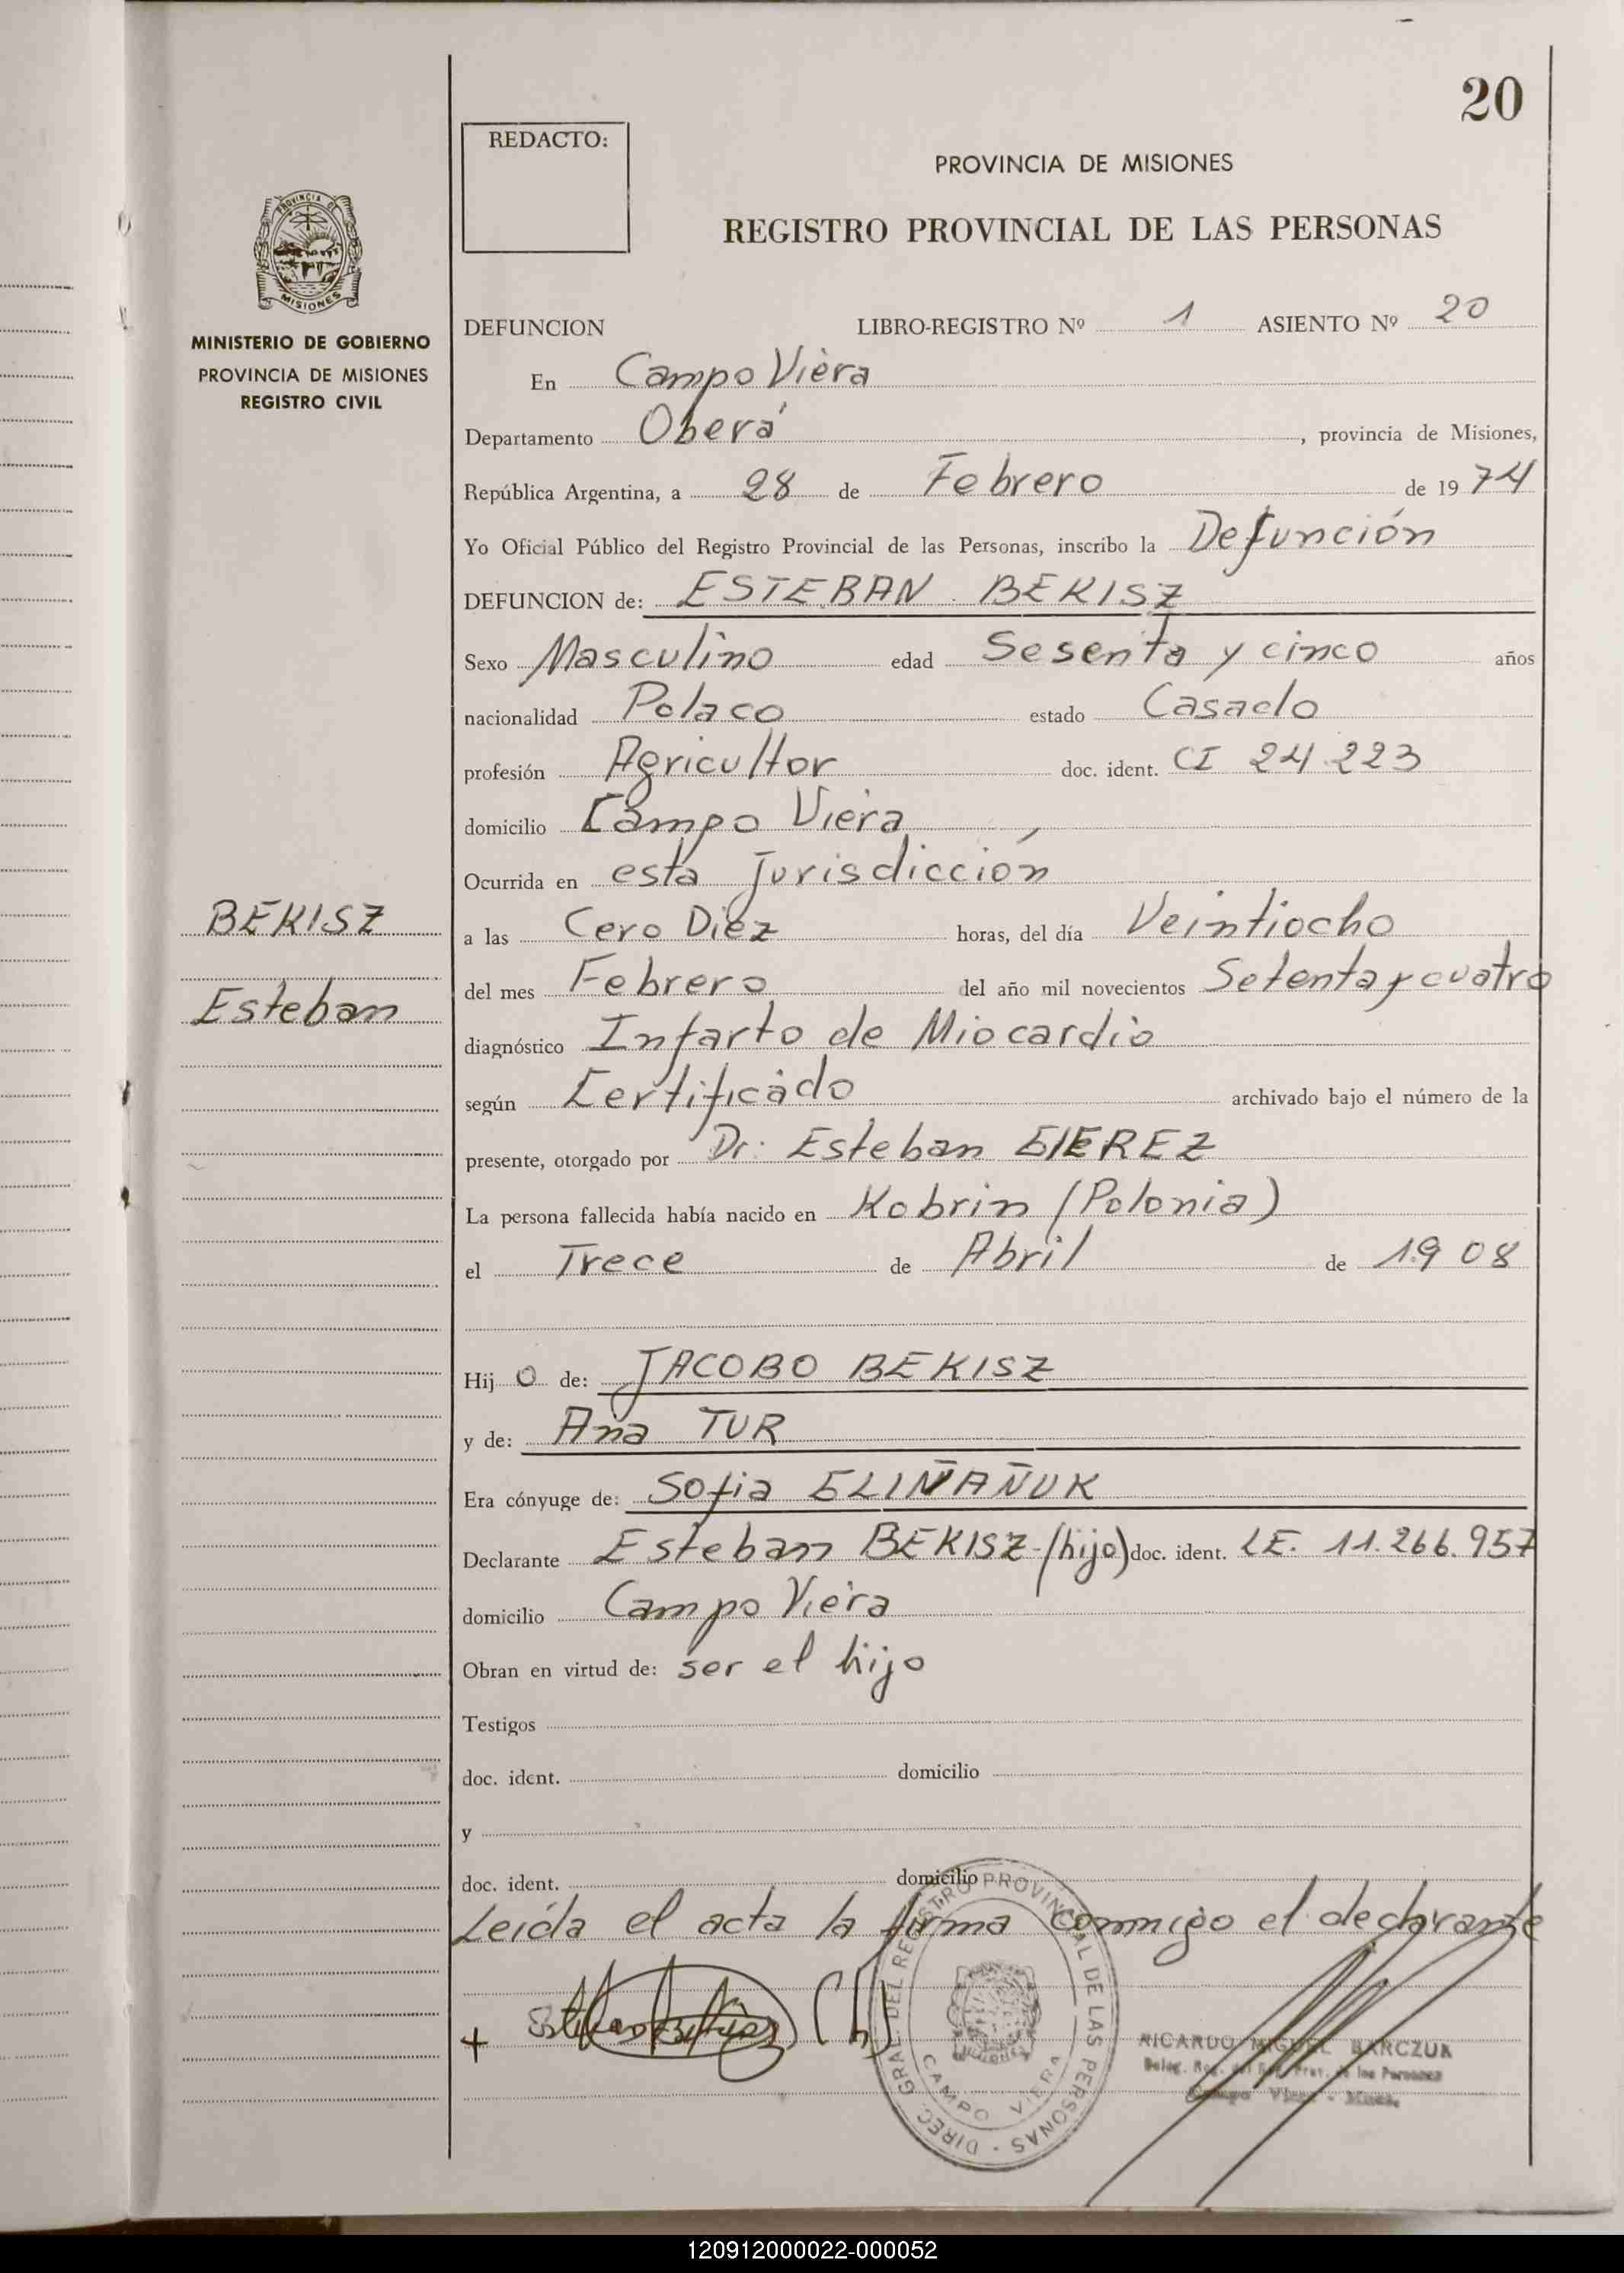 20
REDACTO:
PROVINCIA DE MISIONES
REGISTRO PROVINCIAL DE LAS PERSONAS
PROVINCIA DE
MISIONES
MINISTERIO DE GOBIERNO
PROVINCIA DE MISIONES
REGISTRO CIVIL
DEFUNCION LIBRO-REGISTRO Nº 1 ASIENTO Nº 20
En Campo Viera
Departamento Oberá, provincia de Misiones,
República Argentina, a 28 de Febrero de 1974
Yo Oficial Público del Registro Provincial de las Personas, inscribo la Defunción
DEFUNCION de: ESTEBAN BEKISZ
Sexo Masculino edad Sesenta y cinco años
nacionalidad Polaco estado Casado
profesión Agricultor doc. ident. CI 24.223
domicilio Campo Viera
Ocurrida en esta Jurisdicción
BEKISZ
Esteban
a las Cero Diez horas, del día Veintiocho
del mes Febrero del año mil novecientos Setenta y cuatro
diagnóstico Infarto de Miocardio
según Certificado archivado bajo el número de la
presente, otorgado por Dr. Esteban
La persona fallecida había nacido en Kobrin (Polonia)
el Trece de Abril de 1908
Hijo de: JACOBO BEKISZ
y de: Ana TUR
Era cónyuge de: Sofia
Declarante Esteban BEKISZ-(hijo) doc. ident. LE. 11.266.957
domicilio Campo Viera
Obran en virtud de: ser el hijo
Testigos
doc. ident. domicilio
y
doc. ident. domicilio
Leída el acta la firma conmigo el declarante
DIREC. GRAL. DEL REGISTRO PROVINCIAL DE LAS PERSONAS
MISIONES
CAMPO VIERA
RICARDO MIGUEL BARCZUK
120912000022-000052